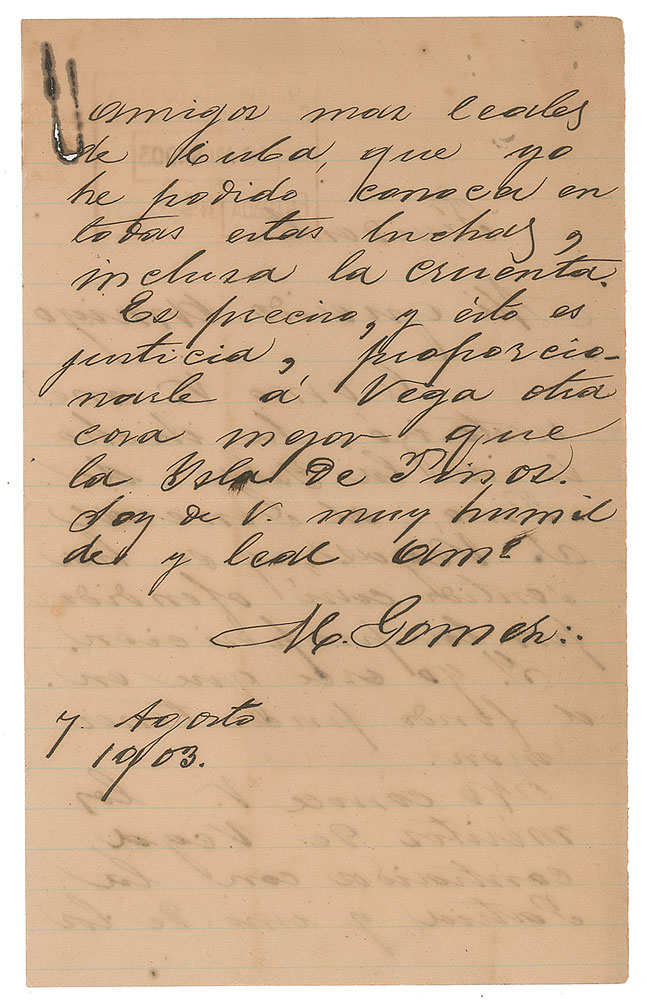 amigos mas leales
de Cuba, que yo
he podido conocer en
todas estas luchas,
inclusa la cruenta.
Es preciso, y ésto es
justicia, proporcio-
narle á Vega otra
cosa mejor que
la Isla de Pinos.
Soy de V. muy humil
de y leal amº
M. Gomez:.
7. Agosto
1903.